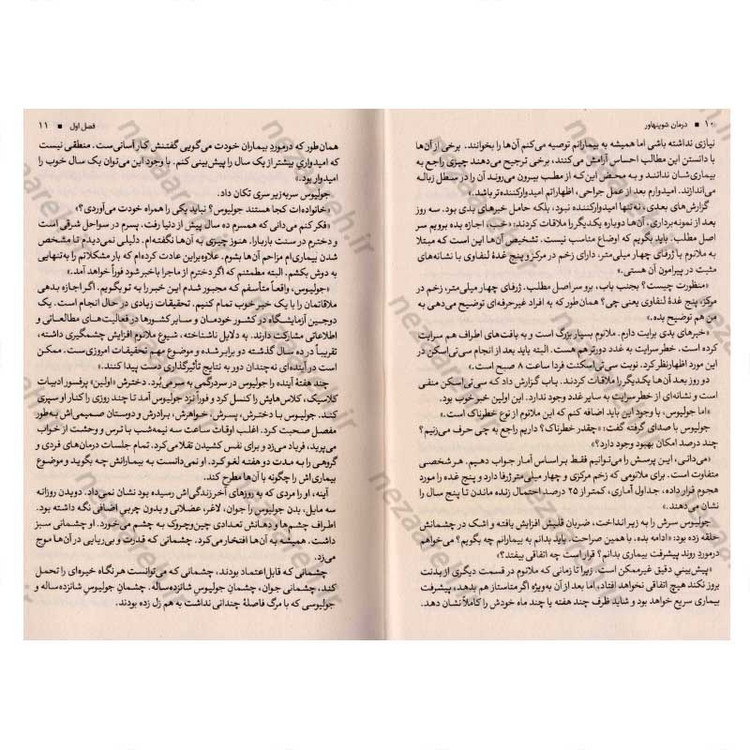 ۱۰ ■ درمان شوپنهاور
نیازی نداشته باشی اما همیشه به بیمارانم توصیه می‌کنم آن‌ها را بخوانند. برخی از آن‌ها
با دانستن این مطالب احساس آرامش می‌کنند، برخی ترجیح می‌دهند چیزی راجع به
بیماری‌شان ندانند و به محض این‌که از مطب بیرون می‌روند آن را در سطل زباله
می‌اندازند. امیدوارم بعد از عمل جراحی، اظهاراتم امیدوارکننده‌تر باشد.»
گزارش‌های بعدی، نه‌تنها امیدوارکننده نبود، بلکه حامل خبرهای بدی بود. سه روز
بعد از نمونه‌برداری، آن‌ها دوباره یکدیگر را ملاقات کردند: «خب، اجازه بده برویم سر
اصل مطلب. باید بگویم که اوضاع مناسب نیست. تشخیص آن‌ها این است که مبتلا
به ملانوم با ژرفای چهار میلی‌متر، دارای زخم در مرکز و پنج غدهٔ لنفاوی با نشانه‌های
مثبت در پیرامون آن هستی.»
«منظورت چیست؟ بجنب باب، برو سر اصل مطلب. ژرفای چهار میلی‌متر، زخم در
مرکز، پنج غدهٔ لنفاوی یعنی چی؟ همان‌طور که به افراد غیرحرفه‌ای توضیح می‌دهی به
من هم توضیح بده.»
«خبرهای بدی برایت دارم. ملانوم بسیار بزرگ است و به بافت‌های اطراف هم سرایت
کرده است. خطر سرایت به غدد دورتر هم هست. البته باید بعد از انجام سی‌تی‌اسکن در
این مورد اظهارنظر کرد. نوبت سی‌تی اسکنت فردا ساعت ۸ صبح است.»
دو روز بعد آن‌ها یکدیگر را ملاقات کردند. باب گزارش داد که سی‌تی اسکن منفی
است و نشانه‌ای از خطر سرایت به سایر غدد وجود ندارد. این اولین خبر خوب بود.
«اما جولیوس، با وجود این باید اضافه کنم که این ملانوم از نوع خطرناک است.»
جولیوس با صدای گرفته گفت: «چقدر خطرناک؟ داریم راجع به چی حرف می‌زنیم؟
چند درصد امکان بهبود وجود دارد؟»
«می‌دانی، این پرسش را می‌توانیم فقط براساس آمار جواب دهیم. هر شخصی
متفاوت است. برای ملانومی که زخم مرکزی و چهار میلی‌متر ژرفا دارد و پنج غده را مورد
هجوم قرار داده، جداول آماری، کمتر از ۲۵ درصد احتمال زنده ماندن تا پنج سال را
نشان می‌دهند.»
جولیوس سرش را به زیر انداخت، ضربان قلبش افزایش یافته و اشک در چشمانش
حلقه زده بود: «ادامه بده. با همین صراحت. باید بدانم به بیمارانم چه بگویم؟ می‌خواهم
درمورد روند پیشرفت بیماری بدانم؟ قرار است چه اتفاقی بیفتد؟»
«پیش‌بینی دقیق غیرممکن است، زیرا تا زمانی که ملانوم در قسمت دیگری از بدنت
بروز نکند هیچ اتفاقی نخواهد افتاد، اما بعد از آن به‌ویژه اگر متاستاز هم بدهد، پیشرفت
بیماری سریع خواهد بود و شاید ظرف چند هفته یا چند ماه خودش را کاملاً نشان دهد.
فصل اول ■ ۱۱
همان‌طور که درمورد بیماران خودت می‌گویی گفتنش کار آسانی‌ست. منطقی نیست
که امیدواری بیشتر از یک سال را پیش‌بینی کنم. با وجود این می‌توان یک سال خوب را
امیدوار بود.»
جولیوس سربه‌زیر سری تکان داد.
«خانواده‌ات کجا هستند جولیوس؟ نباید یکی را همراه خودت می‌آوردی؟»
«فکر کنم می‌دانی که همسرم ده سال پیش از دنیا رفت. پسرم در سواحل شرقی است
و دخترم در سنت باربارا. هنوز چیزی به آن‌ها نگفته‌ام. دلیلی نمی‌دیدم تا مشخص
شدن بیماری‌ام مزاحم آن‌ها بشوم. علاوه‌براین عادت کرده‌ام که بار مشکلاتم را به‌تنهایی
به دوش بکشم. البته مطمئنم که اگر دخترم از ماجرا باخبر شود فوراً خواهد آمد.»
«جولیوس، واقعاً متأسفم که مجبور شدم این خبر را به تو بگویم. اگر اجازه بدهی
ملاقاتمان را با یک خبر خوب تمام کنیم. تحقیقات زیادی در حال انجام است. یک
دوجین آزمایشگاه در کشور خودمان و سایر کشورها در فعالیت‌های مطالعاتی و
اطلاعاتی مشارکت دارند. به دلایلی ناشناخته، شیوع ملانوم افزایش چشمگیری داشته،
تقریباً در ده سال گذشته دو برابر شده و موضوع مهم تحقیقات امروزی‌ست. ممکن
است در آینده‌ای نه‌چندان دور به نتایج تأثیرگذاری دست پیدا کنند.»
چند هفته آینده را جولیوس در سردرگمی به سر می‌بُرد. دخترش «اولین» پرفسور ادبیات
کلاسیک، کلاس‌هایش را کنسل کرد و فوراً نزد جولیوس آمد تا چند روزی را کنار او سپری
کند. جولیوس با دخترش، پسرش، خواهرش، برادرش و دوستان صمیمی‌اش به‌طور
مفصل صحبت کرد. اغلب اوقات ساعت سه نیمه‌شب با ترس و وحشت از خواب
می‌پرید، فریاد می‌زد و برای نفس کشیدن تقلا می‌کرد. تمام جلسات درمان‌های فردی و
گروهی را به مدت دو هفته لغو کرد. او نمی‌دانست به بیمارانش چه بگوید و موضوع
بیماری‌اش را چگونه با آن‌ها مطرح کند.
آینه، او را مردی که به روزهای آخر زندگی‌اش رسیده بود نشان نمی‌داد. دویدن روزانه
سه مایل، بدن جولیوس را جوان، لاغر، عضلانی و بدون چربی اضافی نگه داشته بود.
اطراف چشم‌ها و دهانش تعدادی چین‌وچروک به چشم می‌خورد. او چشمانی سبز
داشت. همیشه به آن‌ها افتخار می‌کرد. چشمانی که قدرت و بی‌ریایی در آن‌ها موج
می‌زد.
چشمانی که قابل اعتماد بودند، چشمانی که می‌توانست هر نگاه خیره‌ای را تحمل
کند، چشمانی جوان، چشمانِ جولیوسِ شانزده‌ساله. چشمانِ جولیوسِ شانزده‌ساله و
جولیوسی که با مرگ فاصلهٔ چندانی نداشت به هم زل زده بودند.
nezaareh.ir